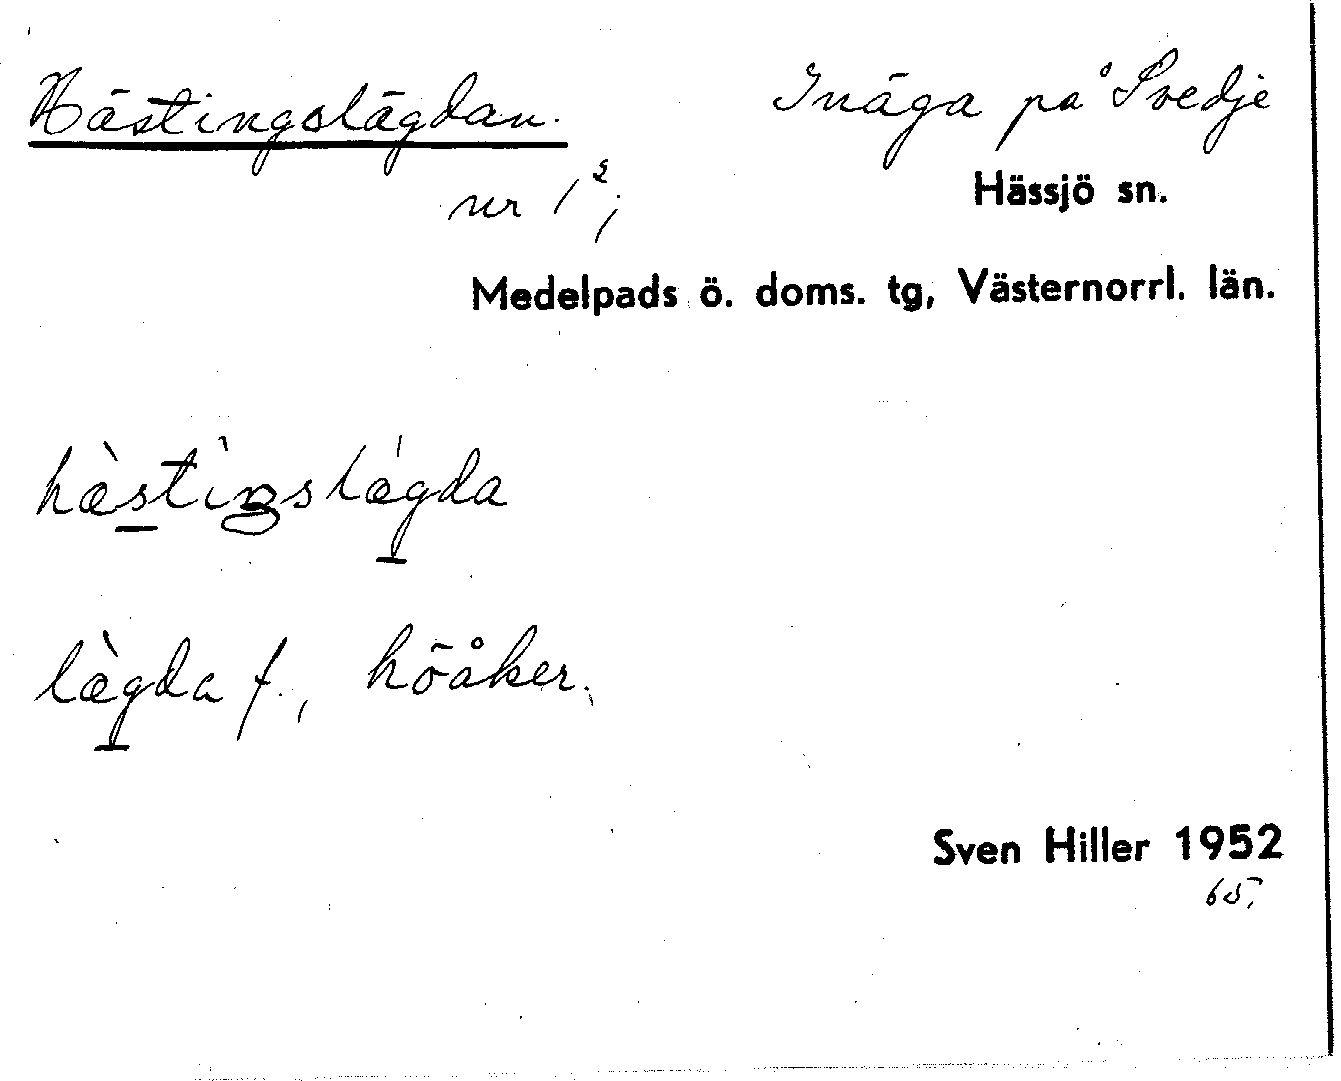 Hästingslägdan.
Inäga på Svedje
nr 1²;
Hässjö sn.
Medelpads ö. doms. tg, Västernorrl. län.
hæ̀stìŋslǽgda
læ̀gda f., höåker.
Sven Hiller 1952
65,